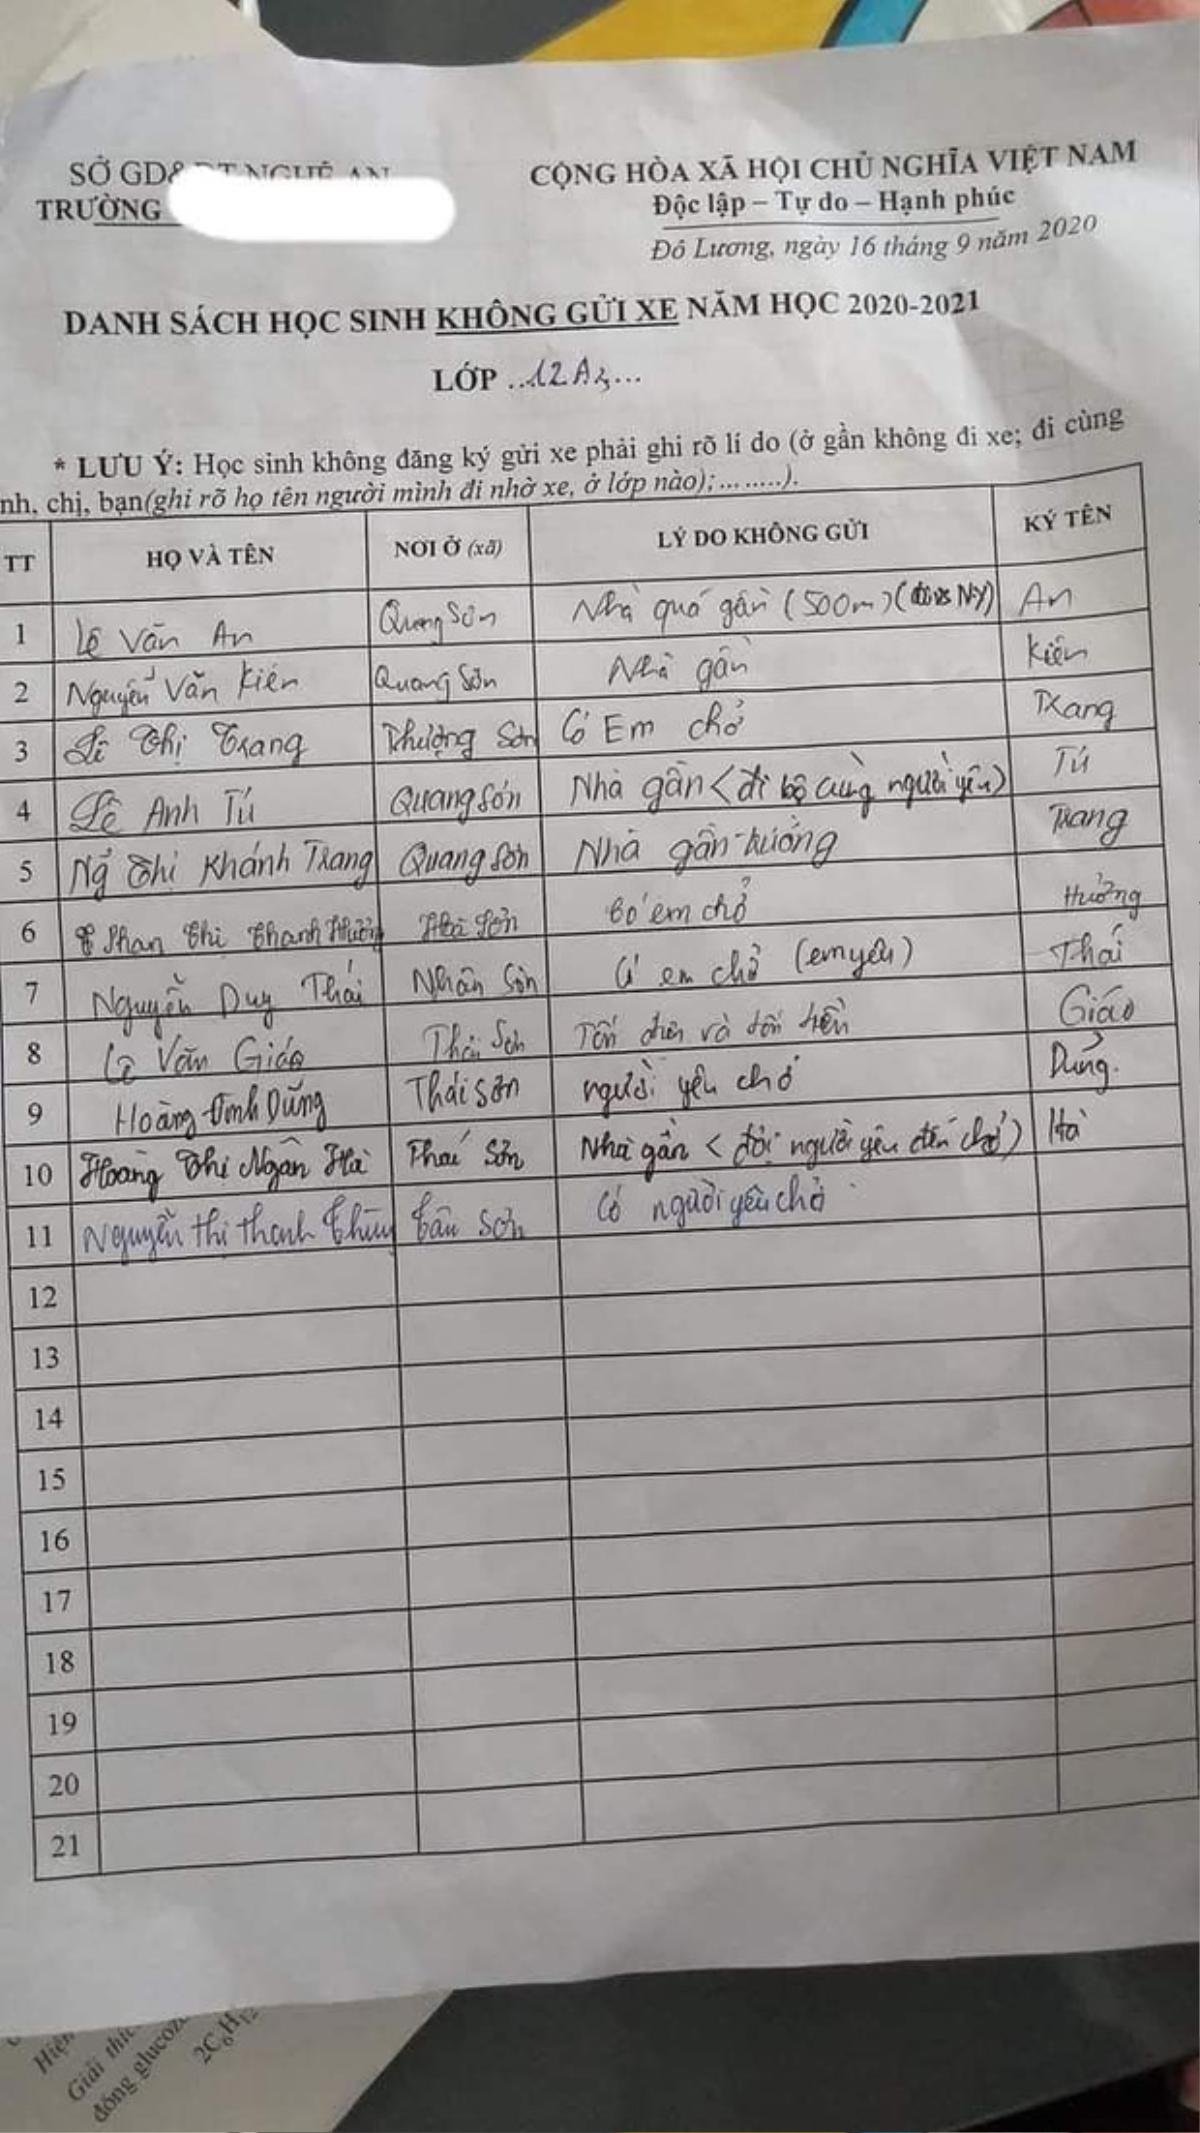 SỞ GD&ĐT NGHỆ AN
TRƯỜNG
CỘNG HÒA XÃ HỘI CHỦ NGHĨA VIỆT NAM
Độc lập – Tự do – Hạnh phúc
Đô Lương, ngày 16 tháng 9 năm 2020
DANH SÁCH HỌC SINH KHÔNG GỬI XE NĂM HỌC 2020-2021
LỚP ...12A3...
* LƯU Ý: Học sinh không đăng ký gửi xe phải ghi rõ lí do (ở gần không đi xe; đi cùng
nh, chị, bạn(ghi rõ họ tên người mình đi nhờ xe, ở lớp nào);........).
TT HỌ VÀ TÊN NƠI Ở (xã) LÝ DO KHÔNG GỬI KÝ TÊN
1 Lê Văn An Quang Sơn Nhà quá gần (500m) An
2 Nguyễn Văn Kiên Quang Sơn Nhà gần Kiên
3 Lê Thị Trang Thượng Sơn Có Em chở Trang
4 Lê Anh Tú Quang Sơn Nhà gần (đi bộ cùng người yêu) Tú
5 Ng̃ Thị Khánh Trang Quang Sơn Nhà gần trường Trang
6 Phan Thị Thanh Hưởng Sơn Có em chở Hưởng
7 Nguyễn Duy Thái Nhân Sơn Có em chở (em yêu) Thái
8 Lê Văn Giáo Thái Sơn Tốn và tốn tiền Giáo
9 Hoàng Đình Dũng Thái Sơn người yêu chở Dũng.
10 Hoàng Thị Ngân Hà Thái Sơn Nhà gần (đợi người yêu đến chở) Hà
11 Nguyễn Thị Thanh Thùy Tân Sơn Có người yêu chở
12
13
14
15
16
17
18
19
20
21
Hiện
Giải thíc
đồng glucoz
2C6H12